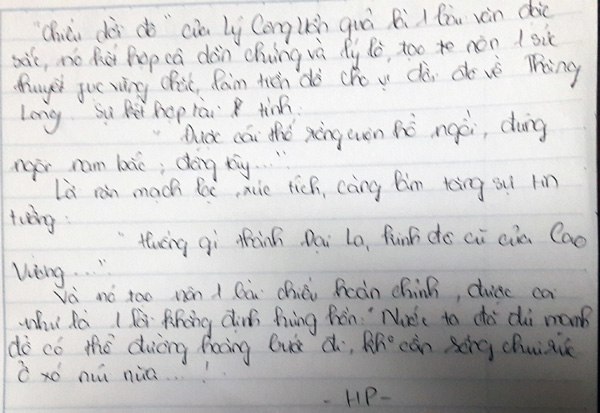 "Chiếu dời đô" của Lý Công Uẩn quả là 1 bài văn đặc
sắc, nó kết hợp cả dẫn chứng và lý lẽ, tạo ra nên 1 sức
thuyết phục vững chắc, làm tiền đề cho vị dời đô về Thăng
Long. Sự kết hợp tài tình:
"Được cái thế rồng cuộn hổ ngồi, đúng
ngôi nam bắc, đông tây..."
Lời văn mạch lạc, súc tích, càng làm tăng sự tin
tưởng:
"Huống gì thành Đại La, kinh đô cũ của Cao
Vương..."
Và nó tạo nên 1 bài chiếu hoàn chỉnh, được coi
như là 1 lời khẳng định hùng hồn: "Nước ta đã đủ mạnh
để có thể đường hoàng bước đi, khº cần sống chui rúc
ở xó núi nữa...!
- HP -